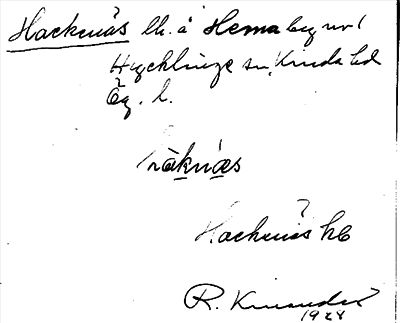 Hacknäs lh. å Hemabyurv i
Hycklinge sn, Kinda hd
Ög. l.
hàknæs
Hacknäs kb
R. Kinander
1928